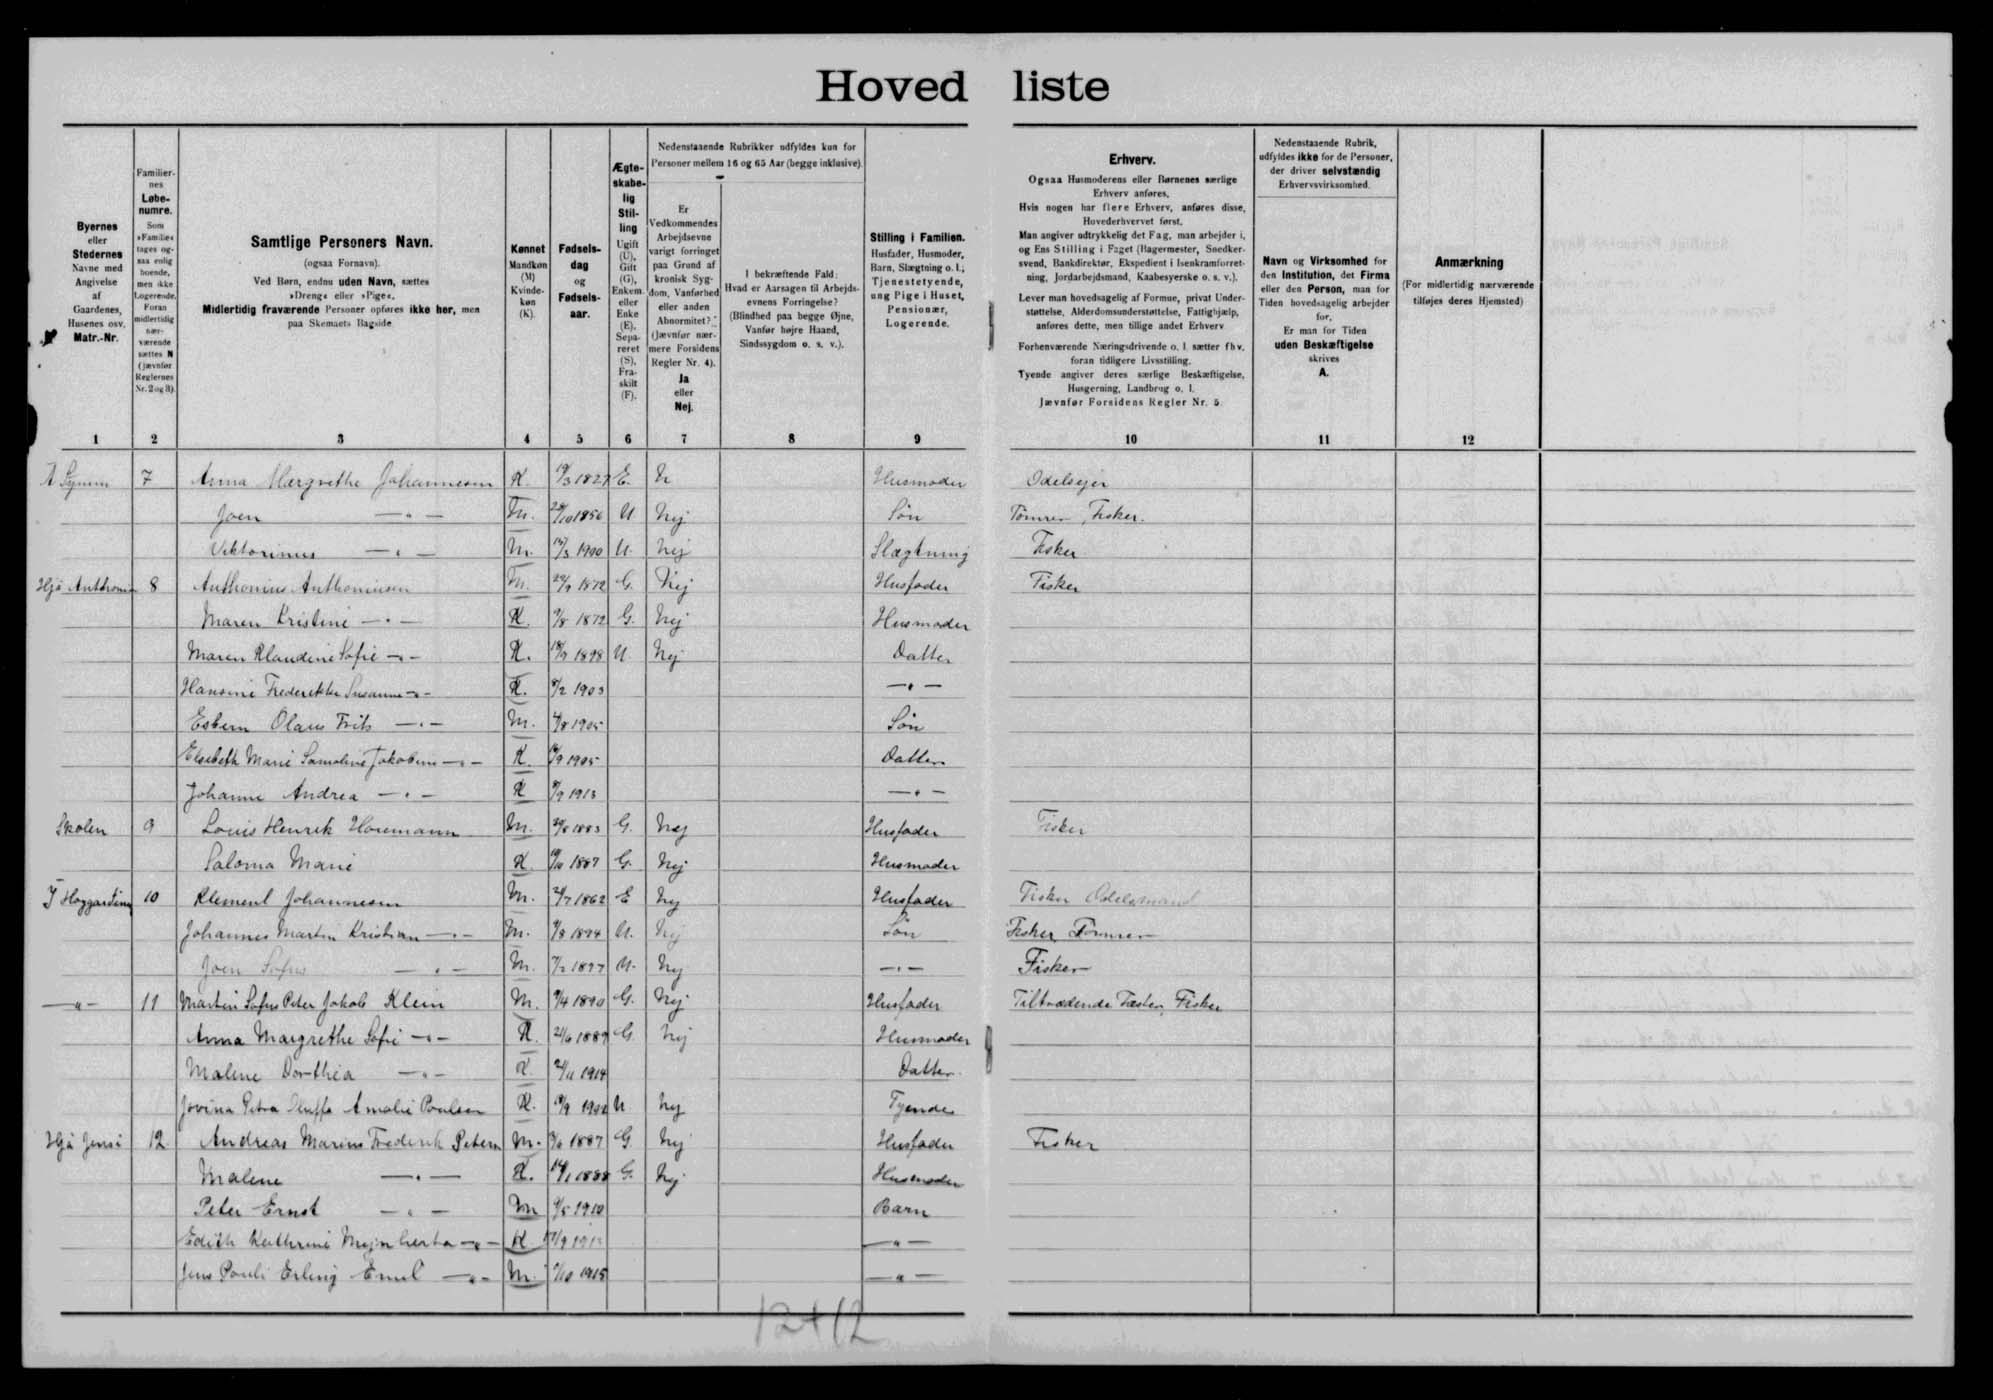 Hovedliste
Byernes eller Stedernes Navne med Angivelse af Gaardenes, Husenes osv. Matr.-Nr.
Familiernes Løbenumre. Som »Familie« tages ogsaa enlig boende, men ikke Logerende. Foran midlertidig nærværende sættes N (jævnfør Reglernes Nr. 2 og 3).
Samtlige Personers Navn. (ogsaa Fornavn). Ved Børn, endnu uden Navn, sættes »Dreng« eller »Pige«. Midlertidig fraværende Personer opføres ikke her, men paa Skemaets Bagside
Kønnet Mandkøn (M) Kvindekøn (K).
Fødselsdag og Fødselsaar.
Ægteskabelig Stilling Ugift (U), Gift (G), Enkem. eller Enke (E). Separeret (S), Fraskilt (F).
Nedenstaaende Rubrikker udfyldes kun for Personer mellem 16 og 65 Aar (begge inklusive).
Er Vedkommendes Arbejdsevne varigt forringet paa Grund af kronisk Sygdom, Vanførhed eller anden Abnormitet? (Jævnfør nærmere Forsidens Regler Nr. 4). Ja eller Nej.
I bekræftende Fald: Hvad er Aarsagen til Arbejdsevnens Forringelse? (Blindhed paa begge Øjne, Vanfør højre Haand, Sindssygdom o. s. v.).
Stilling i Familien. Husfader, Husmoder, Barn, Slægtning o. l.; Tjenestetyende, ung Pige i Huset, Pensionær, Logerende.
Erhverv.
Ogsaa Husmoderens eller Børnenes særlige Erhverv anføres.
Hvis nogen har flere Erhverv, anføres disse, Hovederhvervet først.
Man angiver udtrykkelig det Fag, man arbejder i, og Ens Stilling i Faget (Bagermester, Snedkersvend, Bankdirektør, Ekspedient i Isenkramforretning, Jordarbejdsmand, Kaabesyerske o. s. v.).
Lever man hovedsagelig af Formue, privat Understøttelse, Alderdomsunderstøttelse, Fattighjælp, anføres dette, men tillige andet Erhverv
Forhenværende Næringsdrivende o. l. sætter fhv. foran tidligere Livsstilling.
Tyende angiver deres særlige Beskæftigelse, Husgerning, Landbrug o. l.
Jævnfør Forsidens Regler Nr. 5.
Nedenstaaende Rubrik, udfyldes ikke for de Personer, der driver selvstændig Erhvervsvirksomhed.
Navn og Virksomhed for den Institution, det Firma eller den Person, man for Tiden hovedsagelig arbejder for.
Er man for Tiden uden Beskæftigelse skrives A.
Anmærkning (For midlertidig nærværende tilføjes deres Hjemsted)
1 2 3 4 5 6 7 8 9 10 11 12
7 Anna Margrethe Johannesen K. 1827 E. N Husmoder Odelsejer
Joen —"— M. 1856 U Nej Søn Tømrer, Fisker.
Viktorinus —"— M. 1900 U. Nej Slægtning Fisker
8 Anthonius Anthoniusen M. 1872 G. Nej Husfader Fisker
Maren Kristine —"— K. 1872 G. Nej Husmoder
Maren Klaudine Sofie —"— K. 1898 U. Nej Datter
Hansine Frederikke Susanne —"— K. 1903 —"—
Esbern Olaus Frits —"— M. 1905 Søn
Elsebeth Marie Samaline Jakobine —"— K. 1905 Datter
Johanne Andrea —"— K 1913 —"—
Skolen 9 Louis Henrik Houmann M. 1883 G. Nej Husfader Fisker
Saloma Marie K. 1887 G. Nej Husmoder
10 Klement Johannesen M. 1862 E Nej Husfader Fisker Odelsmand
Johannes Martin Kristian —"— M. 1894 U. Nej Søn Fisker, Tømrer
Joen Sofus —"— M. 1897 U. Nej —"— Fisker
—"— 11 Martin Sofus Peter Jakob Klein M. 1890 G. Nej Husfader Tiltrædende Fæster, Fisker
Anna Margrethe Sofie —"— K. 1889 G. Nej Husmoder
Malene Dorthea —"— K. 1914 Datter.
Jovina Petra Amalie Poulsen K. U. Nej Tyende
Hjá Jensi 12 Andreas Marius Frederik Petersen M. 1887 G. Nej Husfader Fisker
Malene —"— K. 1888 G. Nej Husmoder
Peter Ernst —"— M 1910 Barn
Edith Kathrine —"— K —"—
Jens Pauli Erling Emil —"— M. 1915 —"—
12+12